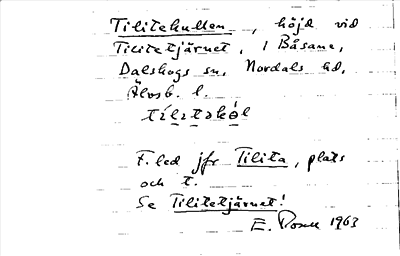 Tilitekullen, höjd vid
Tilitetjärnet, i Båsane,
Dalskogs sn, Nordals hd,
Älvsb. l.
F. led jfr Tilita, plats
och t.
Se Tilitetjärnet!
E. 1963